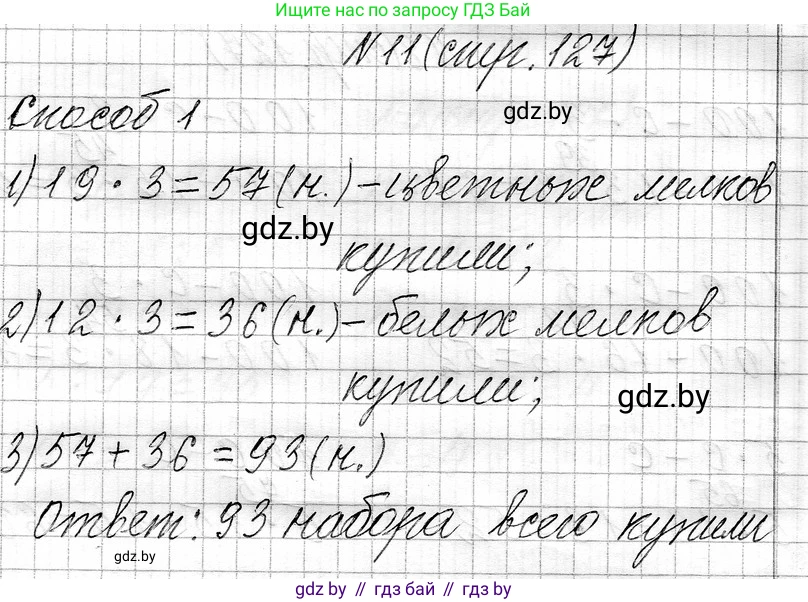 Ищите нас по запросу ГДЗ Бай
N11(стр. 127)
gdz.by
Способ 1
1) 19 · 3 = 57 (н.) - цветных мелков
gdz.by
купили;
2) 12 · 3 = 36 (н.) - белых мелков
купили;
gdz.by
3) 57 + 36 = 93 (н.)
Ответ: 93 набора всего купили
gdz.by
gdz by // гдз бай // гдз by